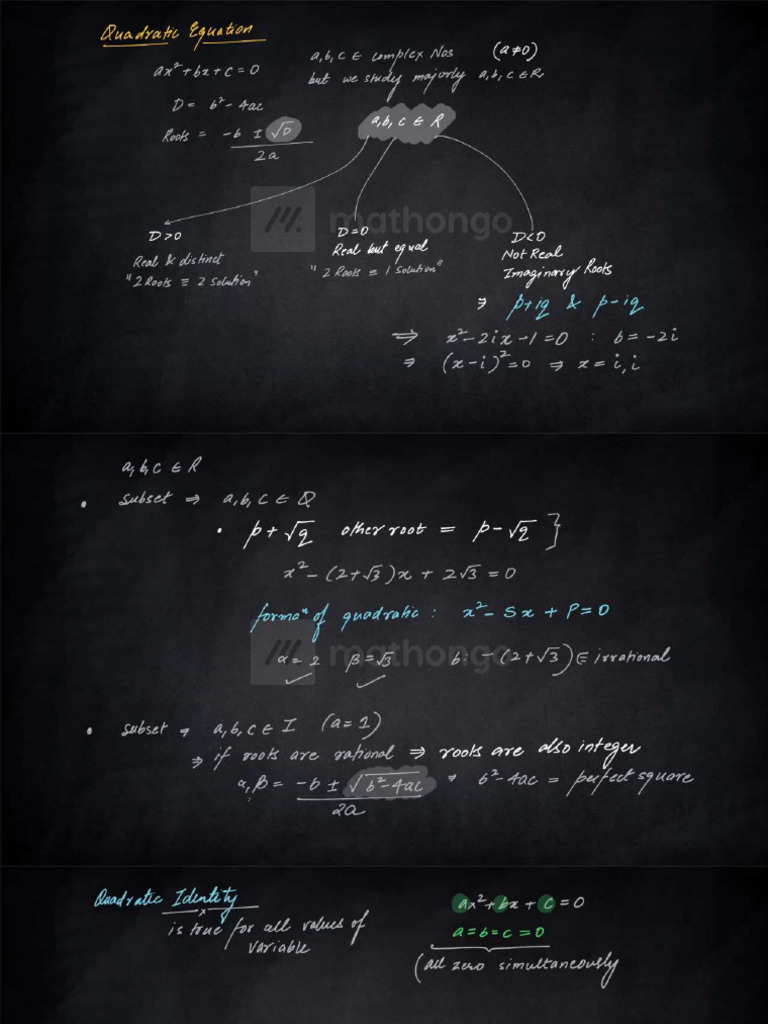 Quadratic Equation
ax² + bx + c = 0
a, b, c ∈ complex Nos (a ≠ 0)
but we study majorly a, b, c ∈ R.
D = b² - 4ac
a, b, c ∈ R
Roots = -b ± √D
2a
mathongo
D > 0
Real & distinct
"2 Roots ≡ 2 Solution"
D = 0
Real but equal
"2 Roots ≡ 1 Solution"
D < 0
Not Real
Imaginary Roots
⇒ p+iq & p-iq
⇒ x² - 2ix - 1 = 0 : b = -2i
⇒ (x-i)² = 0 ⇒ x = i, i
a, b, c ∈ R
• Subset ⇒ a, b, c ∈ Q
• p + √q other root = p - √q }
x² - (2+√3)x + 2√3 = 0
formaⁿ of quadratic : x² - Sx + P = 0
mathongo
α = 2 β = √3 b: -(2+√3) ∈ irrational
• Subset → a, b, c ∈ I (a = 1)
⇒ if roots are rational ⇒ roots are also integer
α, β = -b ± √b² - 4ac ⇒ b² - 4ac = perfect square
2a
Quadratic Identity
is true for all values of
variable
ax² + bx + c = 0
a = b = c = 0
(all zero simultaneously